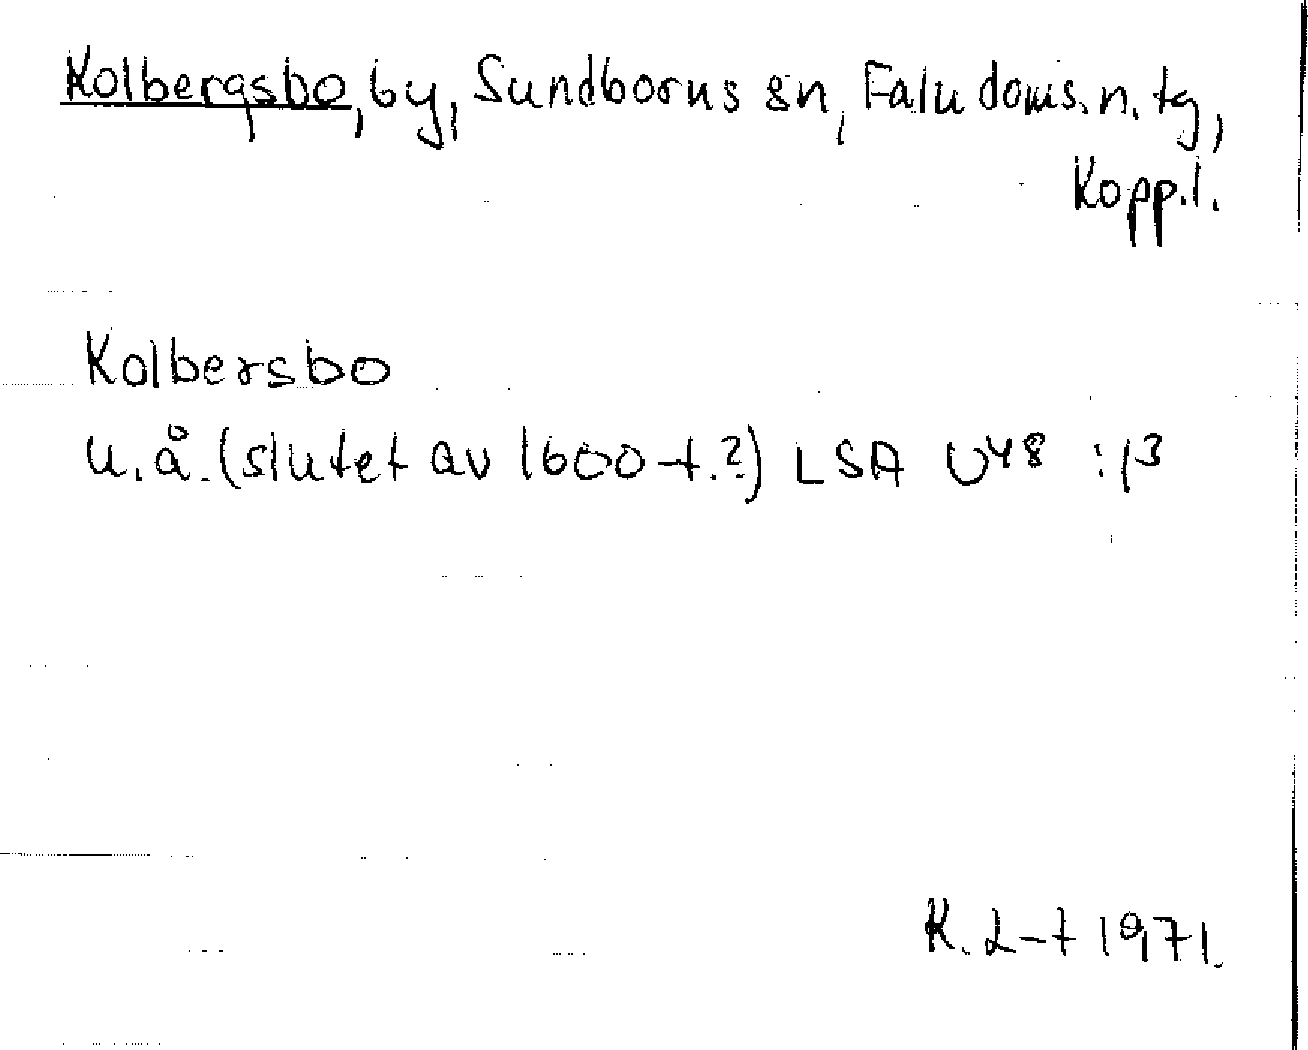 Kolbergsbo, by, Sundborns sn, Falu doms. n. tg,
Kopp.l.
Kolbersbo
u.å. (slutet av 1600-t.?) LSA U48 :/3
K. L-t 1971.